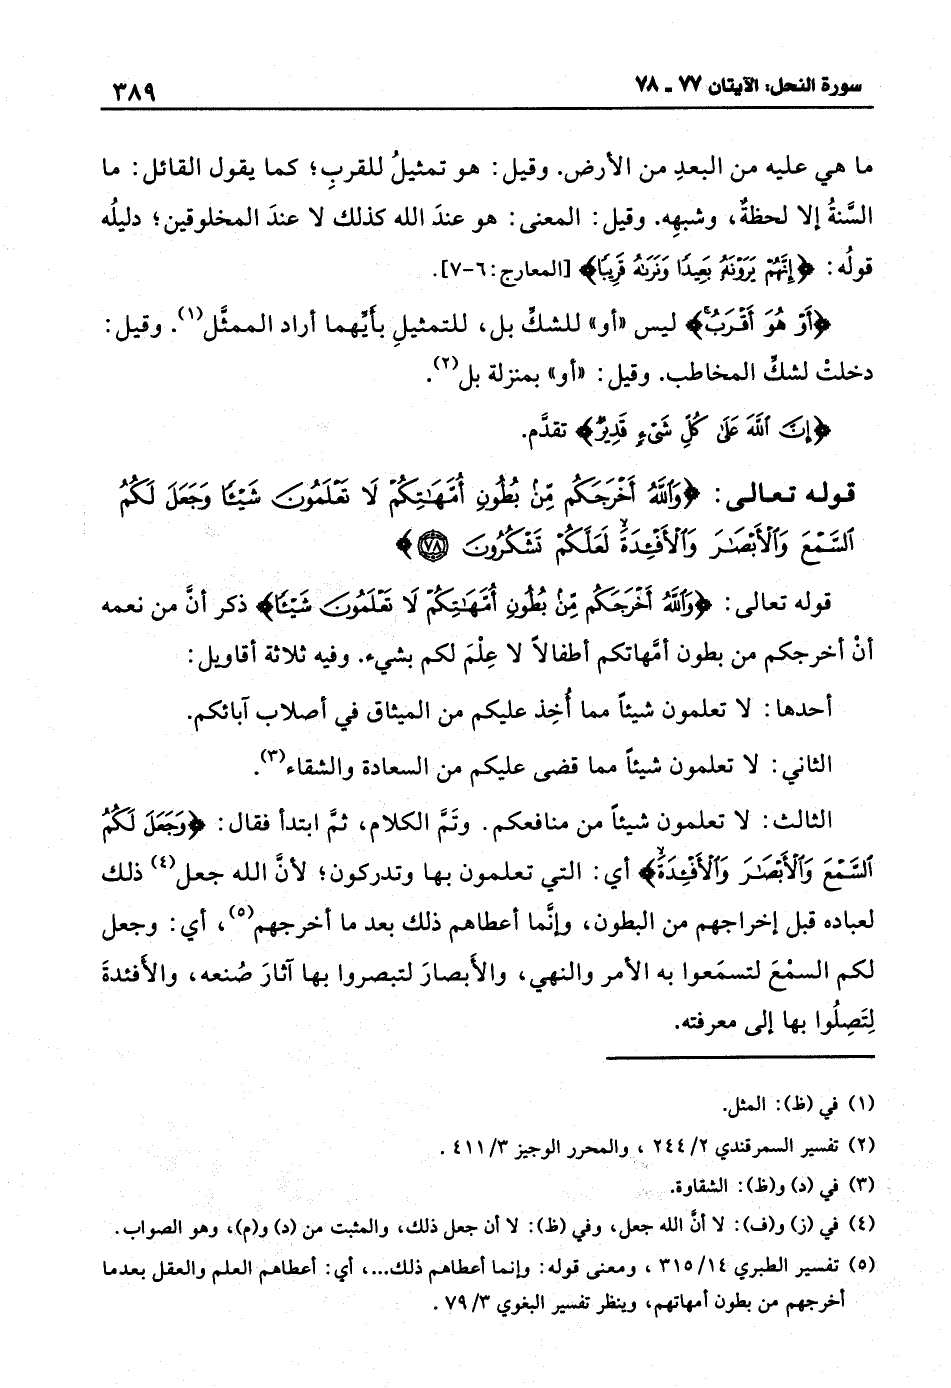 سورة النحل: الآيتان ٧٧ ـ ٧٨
٣٨٩
ما هي عليه من البعدِ من الأرض. وقيل: هو تمثيلُ للقربِ؛ كما يقول القائل: ما
السَّنةُ إلا لحظةٌ، وشبهِه. وقيل: المعنى: هو عندَ الله كذلك لا عندَ المخلوقين؛ دليلُه
قولُه: ﴿إِنَّهُمْ يَرَوْنَهُ بَعِيدًا وَنَرَىٰهُ قَرِيبًا﴾ [المعارج: ٦-٧].
﴿أَوْ هُوَ أَقْرَبُ﴾ ليس «أو» للشكِّ بل، للتمثيلِ بأيِّهما أراد الممثَّل(١). وقيل:
دخلتْ لشكِّ المخاطب. وقيل: «أو» بمنزلة بل(٢).
﴿إِنَّ ٱللَّهَ عَلَىٰ كُلِّ شَىْءٍ قَدِيرٌ﴾ تقدَّم.
قوله تعالى: ﴿وَٱللَّهُ أَخْرَجَكُم مِّنۢ بُطُونِ أُمَّهَٰتِكُمْ لَا تَعْلَمُونَ شَيْـًٔا وَجَعَلَ لَكُمُ
ٱلسَّمْعَ وَٱلْأَبْصَٰرَ وَٱلْأَفْـِٔدَةَۙ لَعَلَّكُمْ تَشْكُرُونَ ٧٨﴾
قوله تعالى: ﴿وَٱللَّهُ أَخْرَجَكُم مِّنۢ بُطُونِ أُمَّهَٰتِكُمْ لَا تَعْلَمُونَ شَيْـًٔا﴾ ذكر أنَّ من نعمه
أنْ أخرجكم من بطون أمَّهاتكم أطفالاً لا عِلْمَ لكم بشيء. وفيه ثلاثة أقاويل:
أحدها: لا تعلمون شيئاً مما أُخِذ عليكم من الميثاق في أصلاب آبائكم.
الثاني: لا تعلمون شيئاً مما قضى عليكم من السعادة والشقاء(٣).
الثالث: لا تعلمون شيئاً من منافعكم. وتَمَّ الكلام، ثمَّ ابتدأ فقال: ﴿وَجَعَلَ لَكُمُ
ٱلسَّمْعَ وَٱلْأَبْصَٰرَ وَٱلْأَفْـِٔدَةَۙ﴾ أي: التي تعلمون بها وتدركون؛ لأنَّ الله جعل(٤) ذلك
لعباده قبل إخراجهم من البطون، وإنَّما أعطاهم ذلك بعد ما أخرجهم(٥)، أي: وجعل
لكم السمْعَ لتسمَعوا به الأمر والنهي، والأبصارَ لتبصروا بها آثارَ صُنعه، والأفئدةَ
لِتَصِلُوا بها إلى معرفته.
(١) في (ظ): المثل.
(٢) تفسير السمرقندي ٢/ ٢٤٤ ، والمحرر الوجيز ٣/ ٤١١ .
(٣) في (د) و(ظ): الشقاوة.
(٤) في (ز) و(ف): لا أنَّ الله جعل، وفي (ظ): لا أن جعل ذلك، والمثبت من (د) و(م)، وهو الصواب.
(٥) تفسير الطبري ١٤/ ٣١٥ ، ومعنى قوله: وإنما أعطاهم ذلك...، أي: أعطاهم العلم والعقل بعدما
أخرجهم من بطون أمهاتهم، وينظر تفسير البغوي ٣/ ٧٩ .